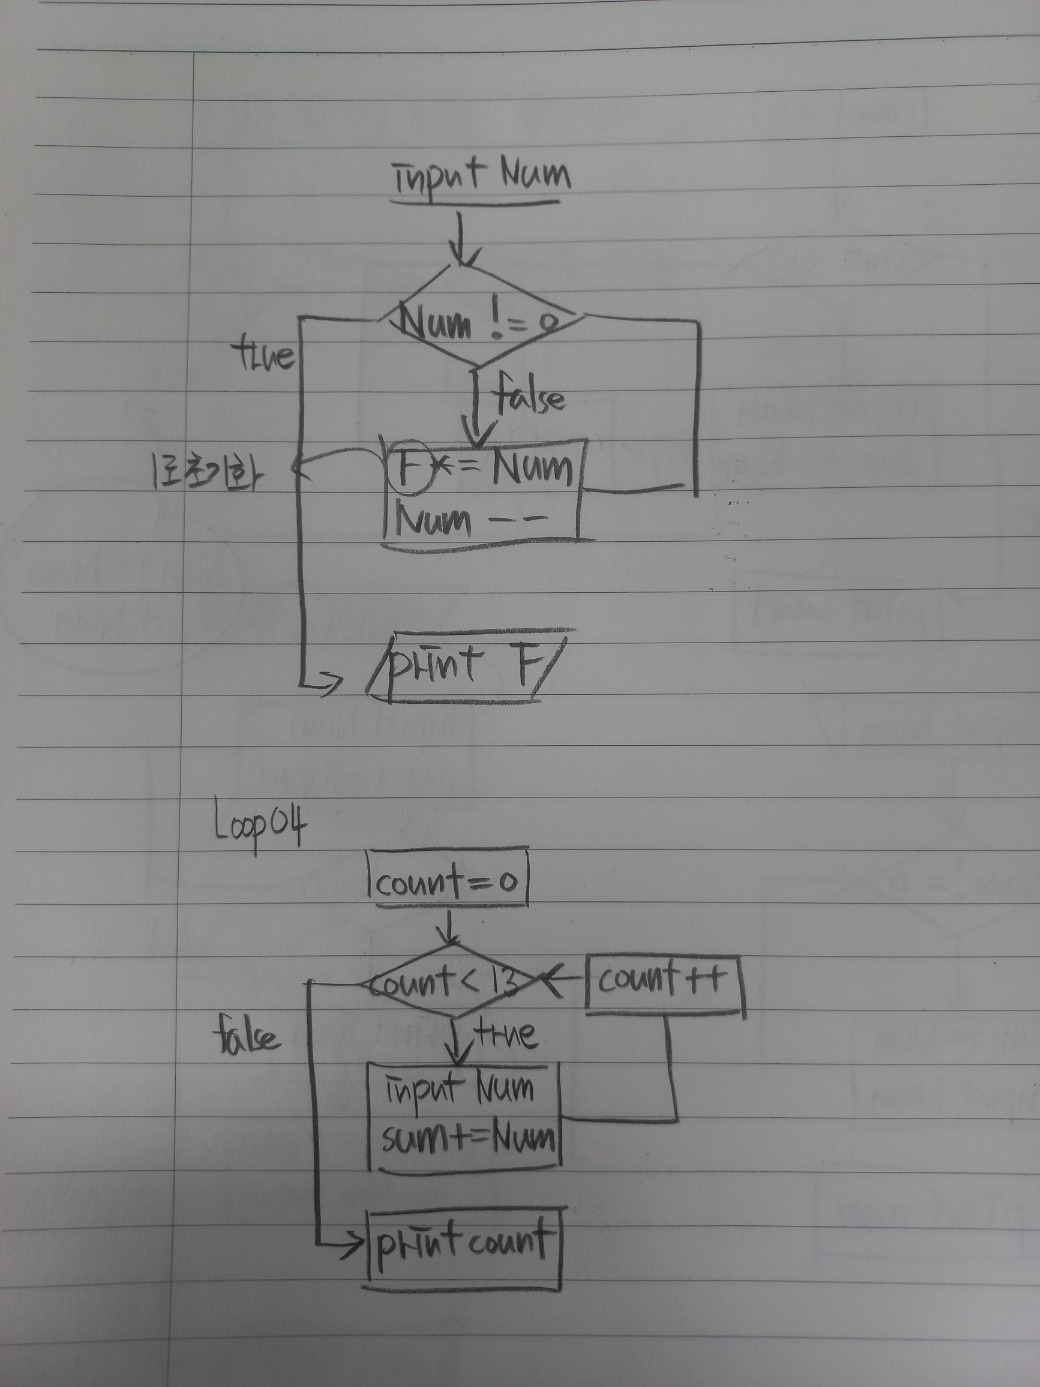 input Num
Num != 0
true
false
1로 초기화
F *= Num
Num --
print F
Loop04
count=0
count < 13
count ++
false
true
input Num
sum+=Num
print count